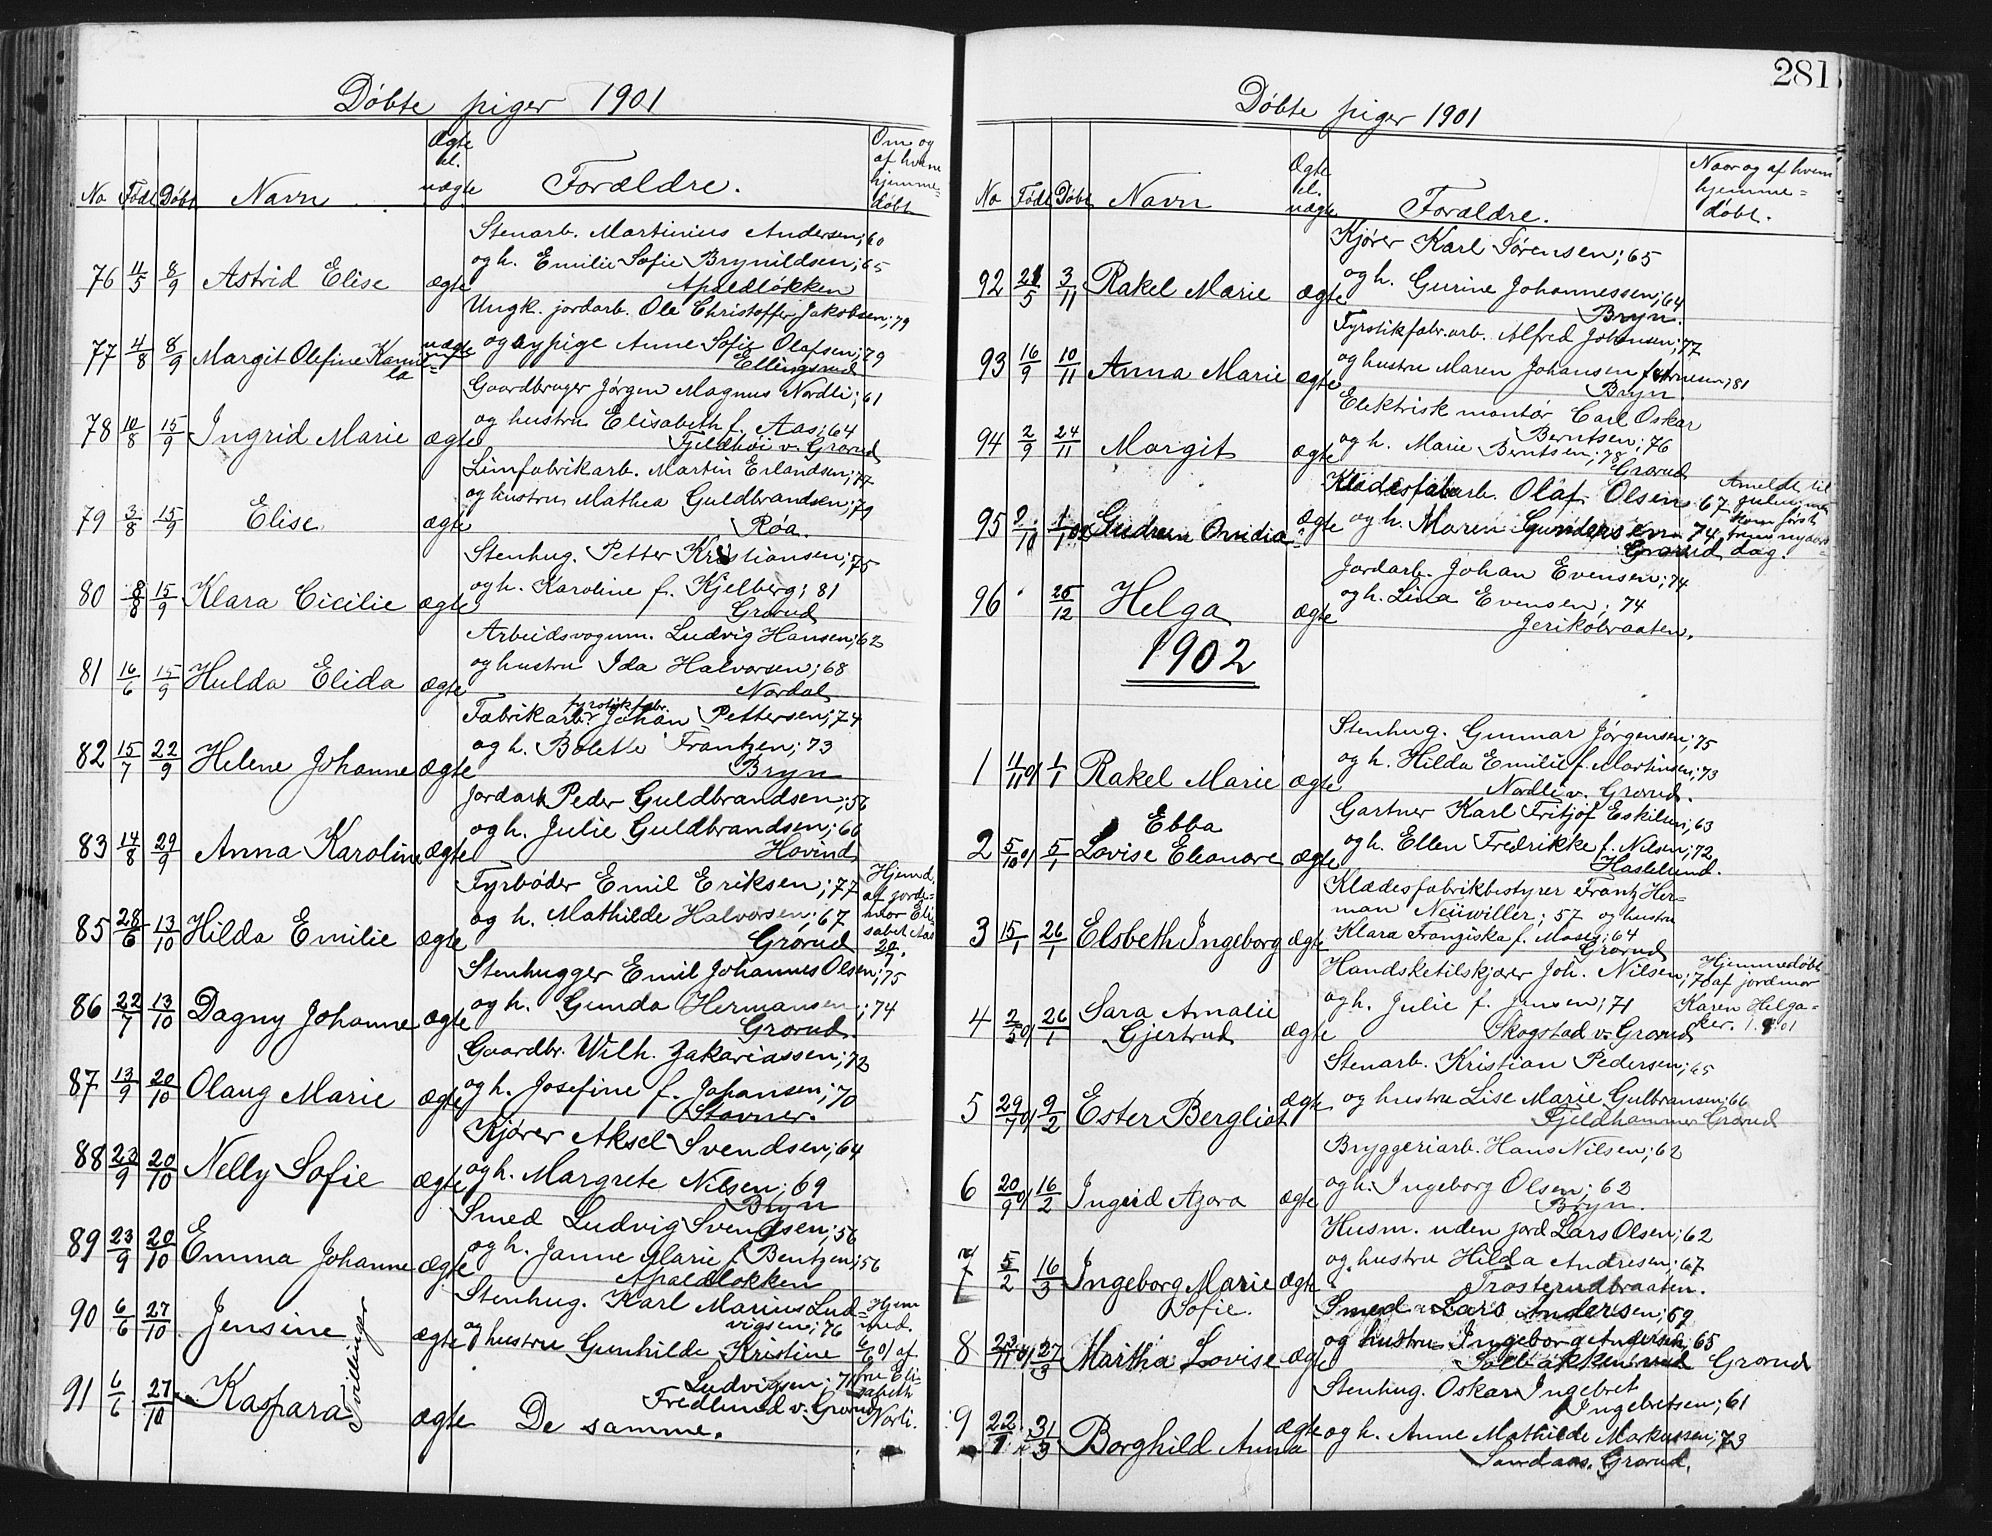 Døbte piger 1901
No Født Døbt Navn Ægte el. uægte Forældre. Om og af hvem hjemme=døbt
Stenarb. Martinius Andersen; 60
76 11/5 8/9 Astrid Elise ægte og h. Emilie Sofie Brynildsen; 65
Apaldløkken
Ungk. jordarb. Ole Christoffer Jakobsen; 79
77 4/8 8/9 Margit Olefine Kamilla uægte og pige Anne Sofie Olafsen; 79
Ellingsrud
Gaardbruger Jørgen Magnus Nordli; 61
78 10/8 15/9 Ingrid Marie ægte og hustru Elisabeth f. Aas; 64
Fjeldhøi v. Grorud
Limfabrikarb. Martin Erlandsen; 77
79 3/8 15/9 Elise ægte og hustru Mathea Guldbrandsen; 79
Røa.
Stenhug. Petter Kristiansen; 75
80 8/8 15/9 Klara Cicilie ægte og h. Karoline f. Kjelberg; 81
Grorud
Arbeidsvognm. Ludvig Hansen; 62
81 16/6 15/9 Hulda Elida ægte og hustru Ida Halvorsen; 68
Nordal
fyrstikfabr.
Fabrikarb. Johan Pettersen; 74
82 15/7 22/9 Helene Johanne ægte og h. Bolette Frantzen; 73
Bryn
Jordarb. Peder Guldbrandsen; 56
83 14/8 29/9 Anna Karoline ægte og h. Julie Guldbrandsen; 66
Hovind
Fyrbøder Emil Eriksen; 77
85 28/6 13/10 Hilda Emilie ægte og h. Mathilde Halvorsen; 67
Grorud
Hjemd. af jorde=mor Elisabet Aas 20/7.
Stenhugger Emil Johannes Olsen; 75
86 22/7 13/10 Dagny Johanne ægte og h. Gunda Hermansen; 74
Grorud
Gaardbr. Wilh. Zakariassen; 72
87 13/9 20/10 Olaug Marie ægte og h. Josefine f. Johansen; 70
Stovner.
Kjører Aksel Svendsen; 64
88 23/9 20/10 Nelly Sofie ægte og h. Margrete Nilsen; 69
Bryn
Smed Ludvig Svendsen; 56
89 23/9 20/10 Emma Johanne ægte og h. Janne Marie f. Bentzen; 56
Apaldløkken
Stenhug. Karl Marius Lud=
vigsen; 76
90 6/6 27/10 Jensine ægte og hustru Gunhilde Kristine
Ludvigsen; 71
Fredlund v. Grorud
Hjemmed. 6/6 01 af fru Elisabeth Norli.
Tvillinger
91 6/6 27/10 Kaspara ægte De samme.
281
Døbte piger 1901
No Født Døbt Navn Ægte el. uægte Forældre. Naar og af hvem hjemme=døbt.
Kjører Karl Sørensen; 65
92 21/5 3/11 Rakel Marie ægte og h. Gurine Johannessen; 64
Bryn.
Fyrstikfabr.arb. Alfred Johansen; 77
93 16/9 10/11 Anna Marie ægte og hustru Maren Johansen f. Arnesen; 81
Bryn.
Elektrisk montør Carl Oskar
Berntsen; 76
94 2/9 24/11 Margit ægte og h. Marie Berntsen;
Grorud
Klædesfabarb. Olaf Olsen 67
95 2/10 1/1 02 Gudrun Omidia ægte og h. Maren Gundersen 74
Grorud
Anmeldt til julen, men kom først nytaars=dag.
Jordarb. Johan Evensen; 74
96 26/12 Helga ægte og h. Lina Evensen; 74
Jerikobraaten.
1902
Stenhug. Gunnar Jørgensen; 75
1 11/11 01 1/1 Rakel Marie ægte og h. Hilda Emilie f. Martinsen; 73
Nordli v. Grorud.
Gartner Karl Fritjof Eskilsen; 63
2 5/10 01 5/1 Ebba Lovise Eleonore ægte og h. Ellen Fredrikke f. Nilsen; 72
Haslelund.
Klædesfabrikbestyrer Frantz Her=
man Neuwiller; 57 og hustru
3 15/1 26/1 Elsbeth Ingeborg ægte Klara Franziska f. Moses; 64
Grorud
Handsketilskjærer Joh. Nilsen; 70
4 2/5 01 26/1 Sara Amalie Gjertrud ægte og h. Julie f. Jensen; 71
Skogstad v. Grorud
Hjemmedøbt af jordmor Karen Helgaker.
Stenarb. Kristian Pedersen; 65
5 29/7 01 9/2 Ester Bergliot ægte og hustru Lise Marie Gulbransen; 66
Fjeldhammer Grorud
Bryggeriarb. Hans Nilsen; 62
6 20/9 01 16/2 Ingrid Azora ægte og h. Ingeborg Olsen; 63
Bryn.
Husm. uden jord Lars Olsen; 62
7 5/2 16/3 Ingeborg Marie Sofie. ægte og hustru Hilda Andresen; 67
Trosterudbraaten.
Smed Lars Andersen; 69
8 23/11 01 27/3 Martha Lovise ægte og hustru Ingeborg Andersen; 65
Solbakken ved Grorud
Stenhug. Oskar Ingebret
Ingebretsen; 61
9 22/1 31/3 Borghild Anna ægte og h. Anne Mathilde Markussen; 73
Sandaas. Grorud.